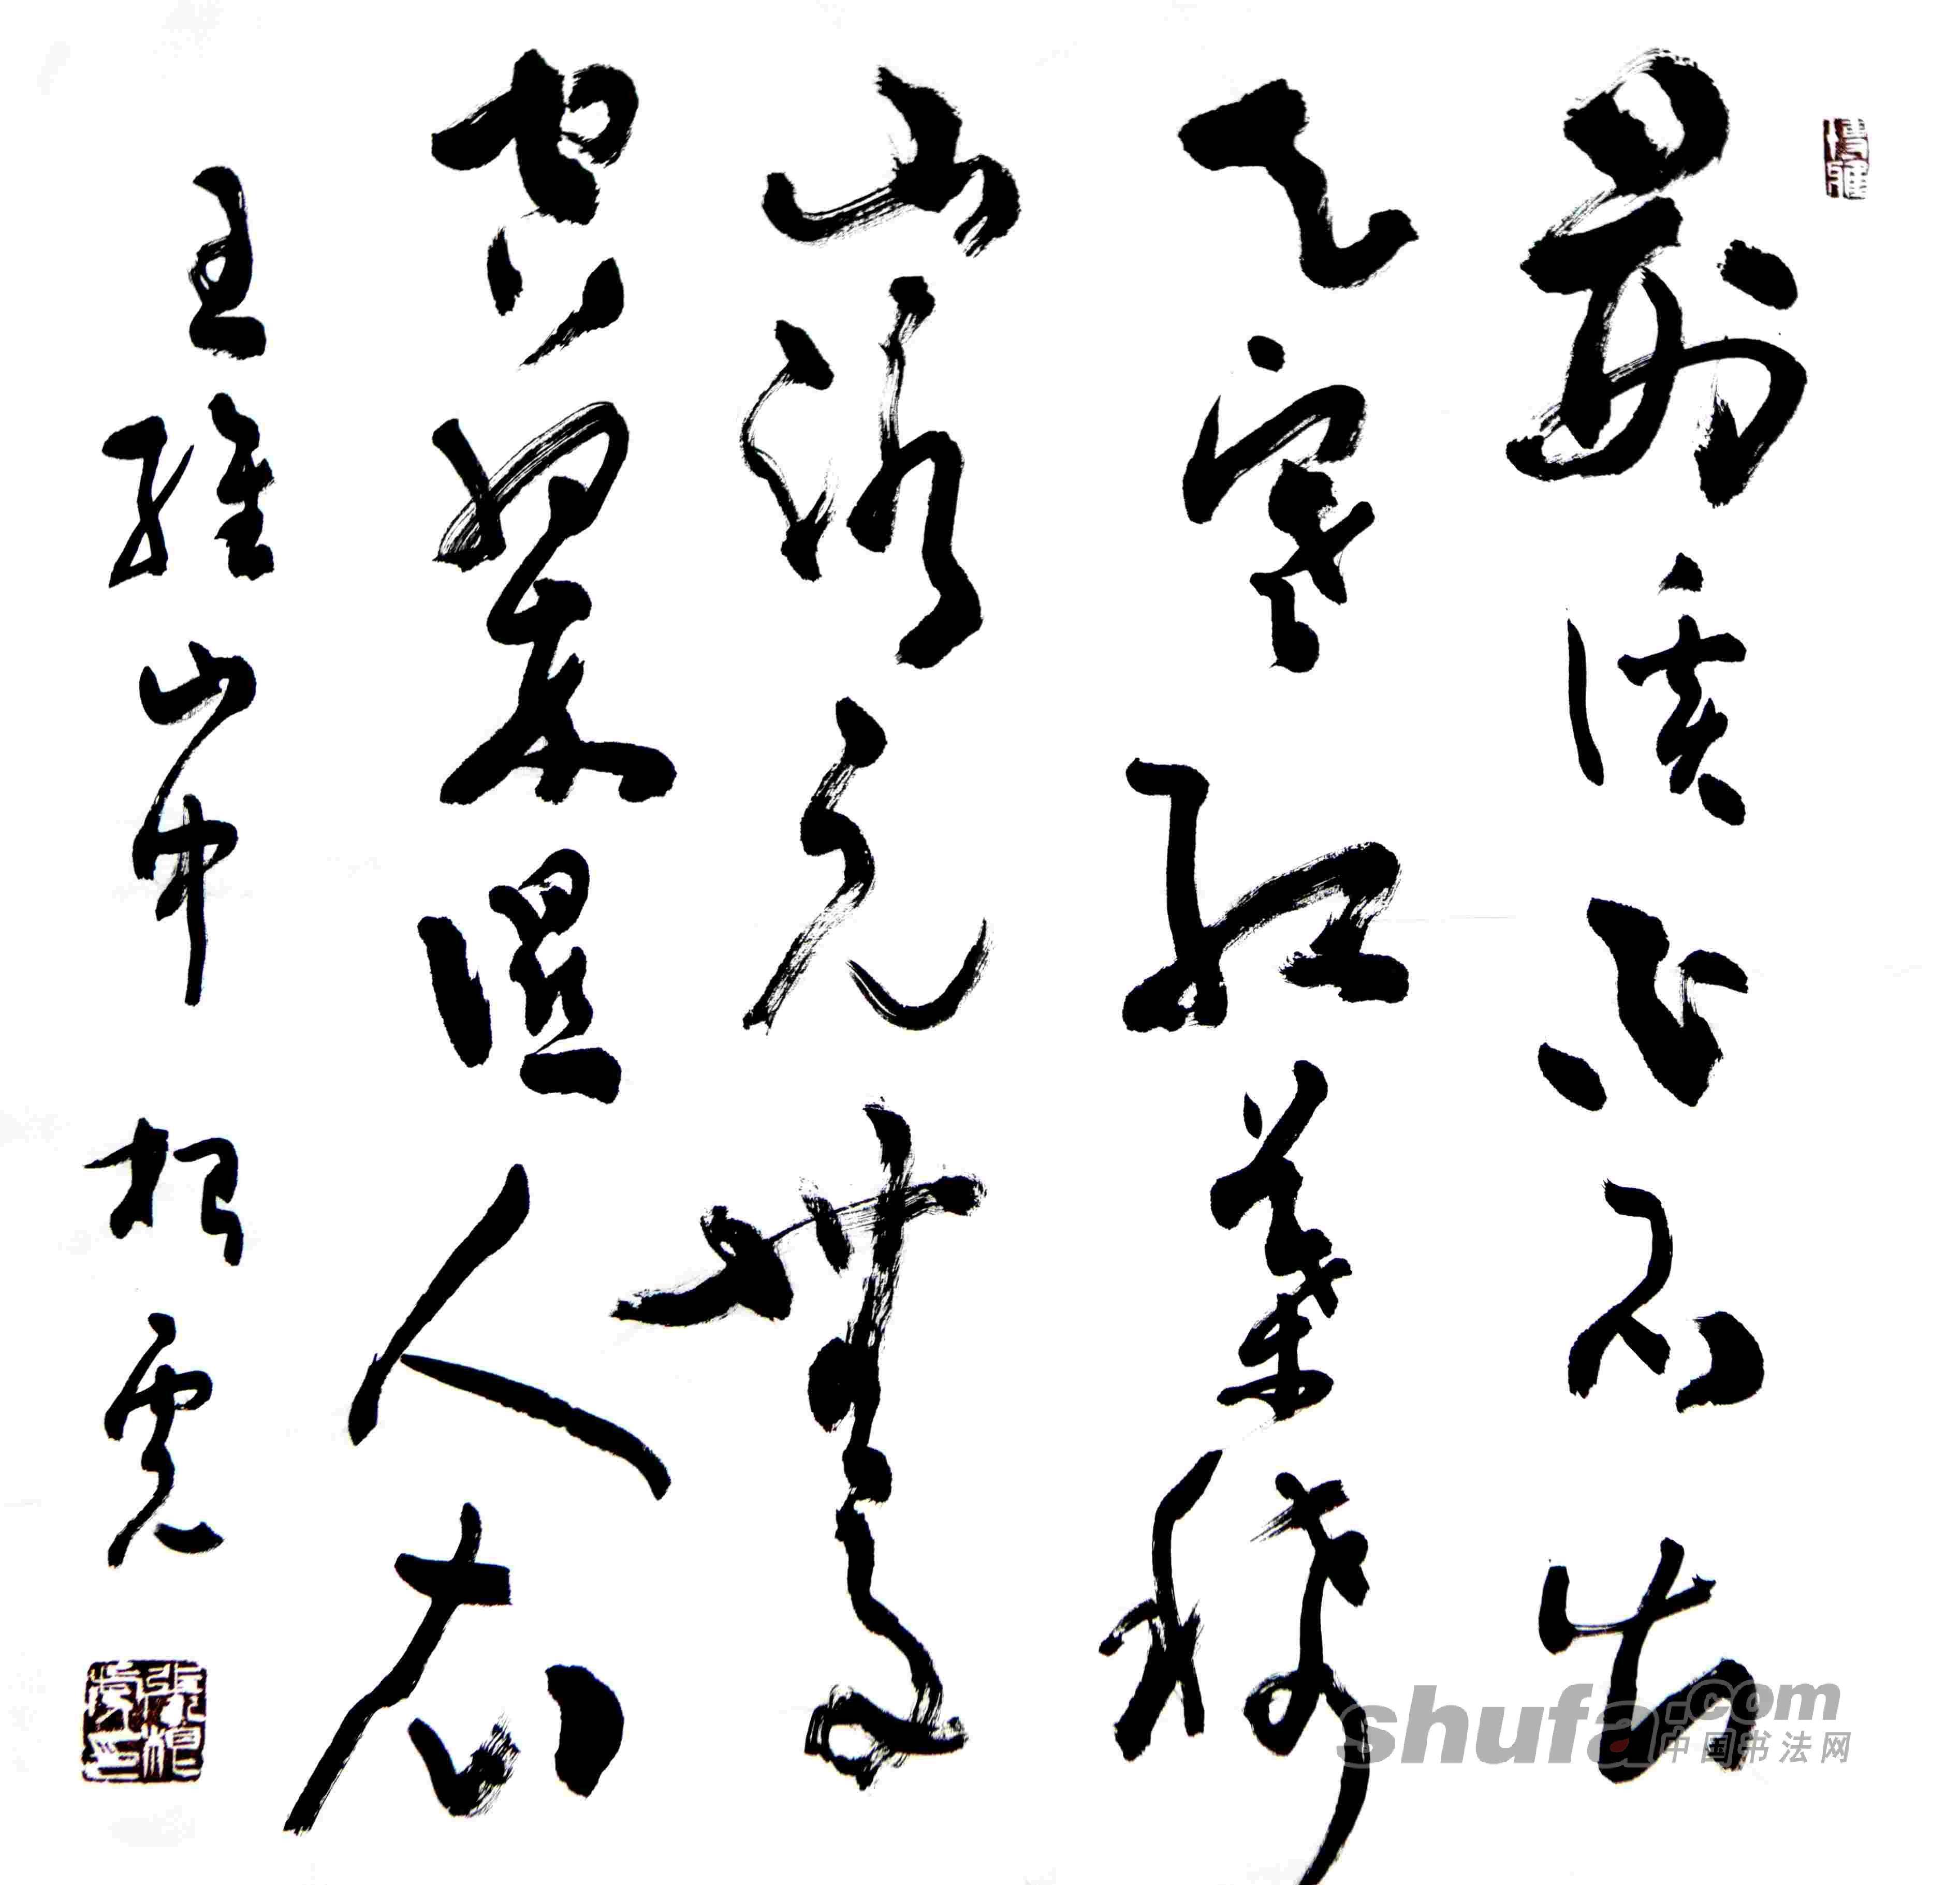 荆溪白石出
天寒紅葉稀
山路元無雨
空翠濕人衣
王維山中 根虎
張根虎印
shufa.com
中国书法网